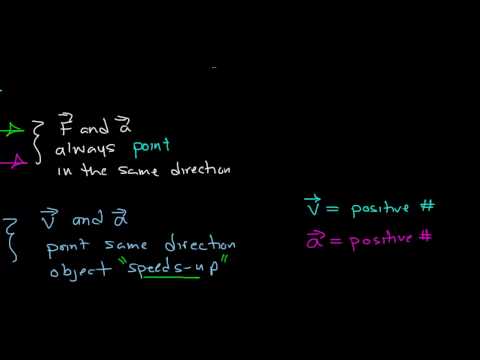 F⃗ and a⃗
always point
in the same direction
v⃗ and a⃗
point same direction
object "speeds-up"
v⃗ = positive #
a⃗ = positive #